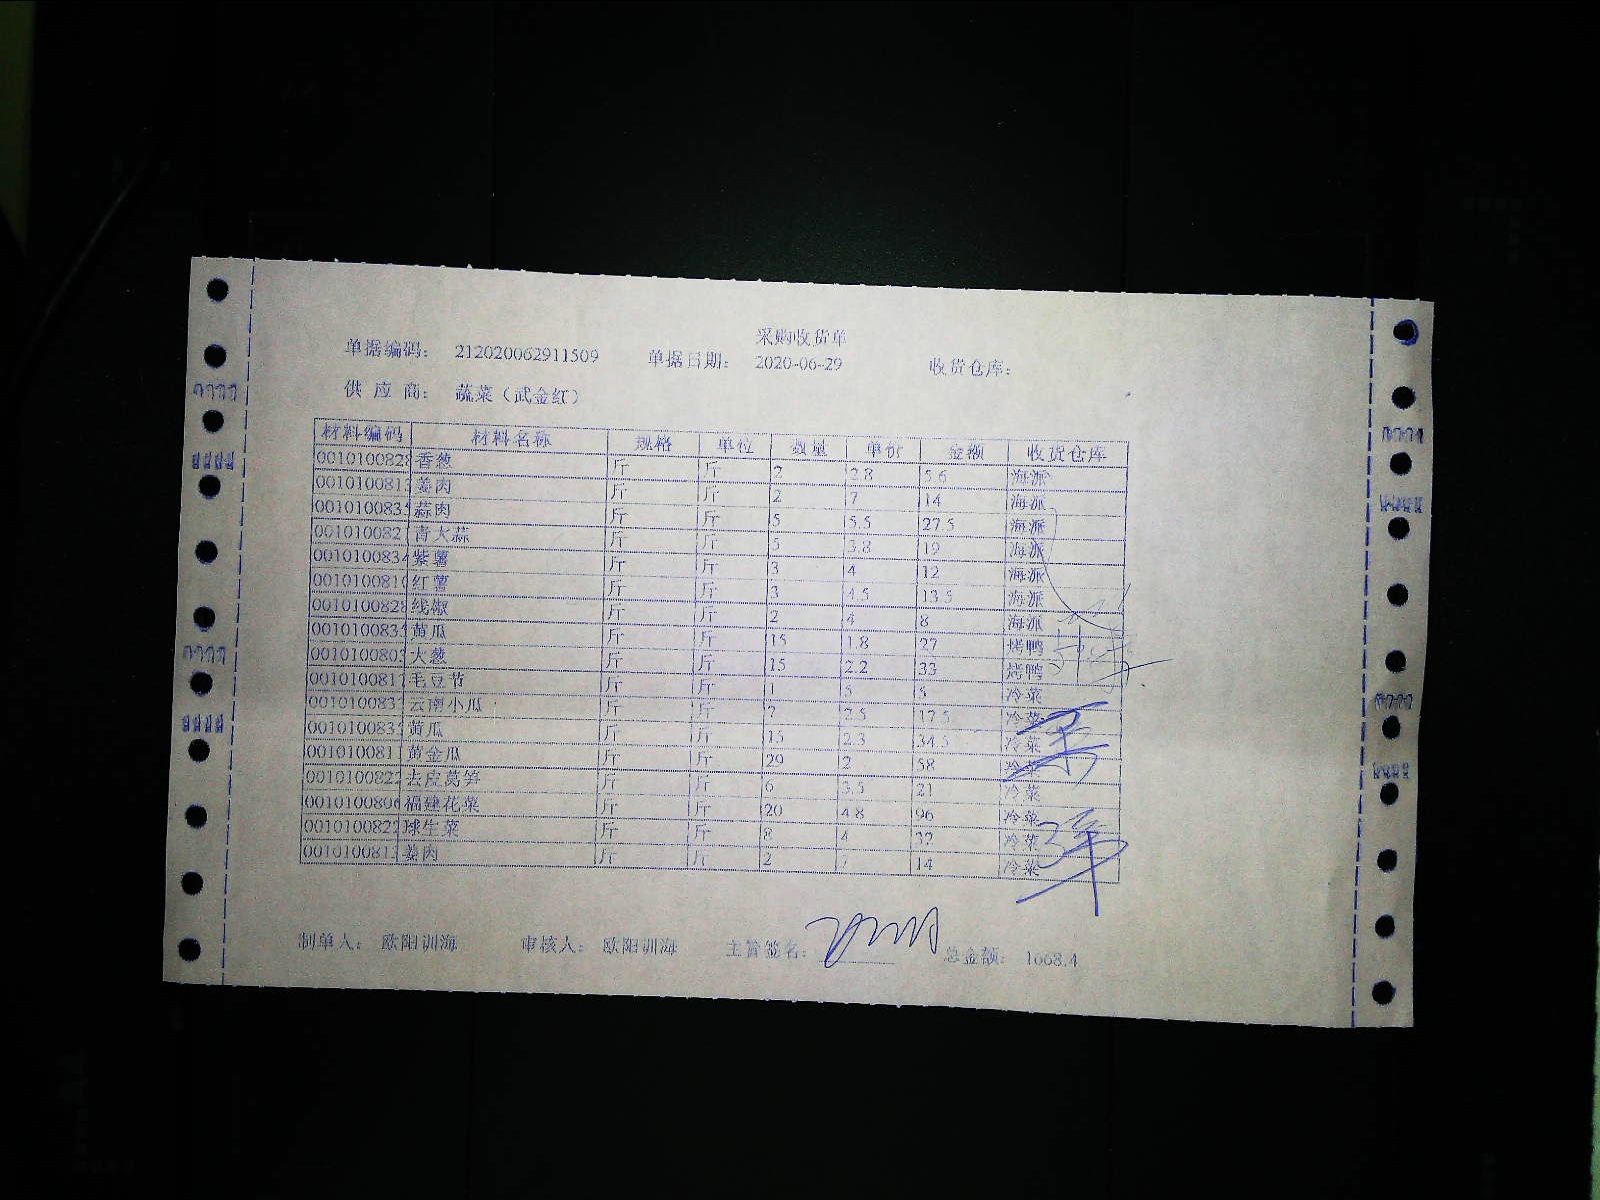 采购收货单
单据编码: 212020062911509 单据日期: 2020-06-29 收货仓库:
供 应 商: 蔬菜(武金红)
材料编码 材料名称 规格 单位 数量 单价 金额 收货仓库
0010100828 香葱 斤 斤 2 2.8 5.6 海派
001010081 姜肉 斤 斤 2 7 14 海派
001010083 蒜肉 斤 斤 5 5.5 27.5 海派
001010082 青大蒜 斤 斤 5 3.8 19 海派
001010083 紫薯 斤 斤 3 4 12 海派
001010081 红薯 斤 斤 3 4.5 13.5 海派
001010082 线椒 斤 斤 2 4 8 海派
001010083 黄瓜 斤 斤 15 1.8 27 烤鸭
001010080 大葱 斤 斤 15 2.2 33 烤鸭
001010081 毛豆节 斤 斤 1 5 5 冷菜
001010083 云南小瓜 斤 斤 7 2.5 17.5 冷菜
001010083 黄瓜 斤 斤 15 2.3 34.5 冷菜
001010081 黄金瓜 斤 斤 29 2 58 冷菜
001010082 去皮莴笋 斤 斤 6 3.5 21 冷菜
001010080 福建花菜 斤 斤 20 4.8 96 冷菜
001010082 球生菜 斤 斤 8 4 32 冷菜
001010081 姜肉 斤 斤 2 7 14 冷菜
制单人: 欧阳训海 审核人: 欧阳训海 主管签名: 总金额: 1668.4